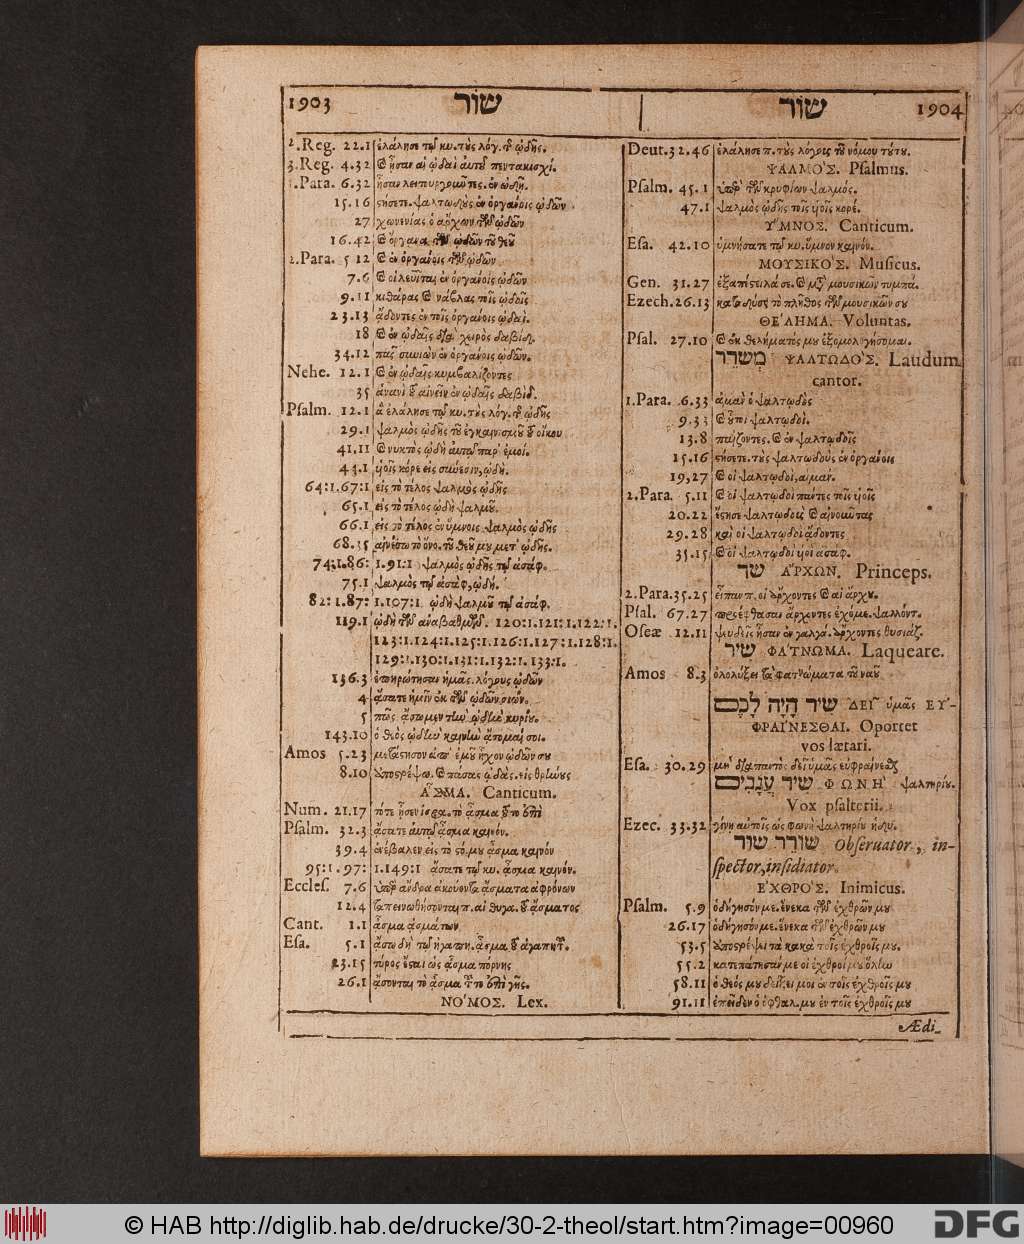 1903 שור
2.Reg. 22.1 ἐλάλησε τῷ κυ. τὺς λόγ. τ῀ ᾠδῆς.
3.Reg. 4.32 ἦσαν αἱ ᾠδαὶ αὐτοῦ πεντακισχί.
1.Para. 6.32
15.16 ὀργάνοις ᾠδῶν
27 χωνενίας ὁ ἄρχων τῶν ᾠδῶν
16.42 ὄργανα τῶν ᾠδῶν τοῦ θεοῦ
2.Para. 5 12 ἐν ὀργάνοις τῶν ᾠδῶν
7.6 οἱ λευῖται ἐν ὀργάνοις ᾠδῶν
9.11 κιθάρας νάβλας τοῖς ᾠδοῖς
23.13 ᾄδοντες ἐν τοῖς ὀργάνοις ᾠδαὶ.
18 ἐν ᾠδαῖς διὰ χειρὸς δαβίδ.
34.12 ἐν ὀργάνοις ᾠδῶν.
Nehe. 12.1 ἐν ᾠδαῖς κυμβαλίζοντες
35 αἰνεῖν ἐν ᾠδαῖς δαβὶδ.
Psalm. 12.1 ἃ ἐλάλησε τῷ κυ. τὺς λόγ. τ῀ ᾠδῆς
29.1 ψαλμὸς ᾠδῆς τοῦ ἐγκαινισμοῦ οἴκου
41.11 νυκτὸς ᾠδὴ αὐτοῦ παρ' ἐμοί.
43.1 υἱοῖς κόρε εἰς σύνεσιν, ᾠδή.
64:1.67:1 εἰς τὸ τέλος ψαλμὸς ᾠδῆς
65.1 εἰς τὸ τέλος ᾠδὴ ψαλμοῦ.
66.1 εἰς τὸ τέλος ἐν ὕμνοις ψαλμὸς ᾠδῆς
68.35 αἰνέσω τὸ ὄνο. τοῦ θεοῦ μου μετ' ᾠδῆς.
74:1.86: 1.91.1 ψαλμὸς ᾠδῆς τῷ ἀσάφ.
75.1 ψαλμὸς τῷ ἀσὰφ, ᾠδή.
82:1.87: 1.107:1 ᾠδὴ ψαλμοῦ τῷ ἀσάφ.
119.1 ᾠδὴ τῶν ἀναβαθμῶν. 120:1.121:1.122:1.
123:1.124:1.125:1.126:1.127:1.128:1.
129:1.130:1.131:1.132:1.133:1.
136.3 ἐπηρώτησαν ἡμᾶς. λόγους ᾠδῶν
4 ᾄσατε ἡμῖν ἐκ τῶν ᾠδῶν σιών.
5 πῶς ᾄσωμεν τὴν ᾠδὴν κυρίου.
143.10 ὁ θεὸς ᾠδὴν καινὴν ᾄσομαί σοι.
Amos 5.23 μετάστησον ἀπ' ἐμοῦ ἦχον ᾠδῶν σου
8.10 πάσας ᾠδὰς. εἰς θρήνους
ἎΣΜΑ. Canticum.
Num. 21.17 τότε ᾖσεν ἰσρα. τὸ ᾆσμα
Psalm. 32.3 ᾄσατε αὐτῷ ᾆσμα καινόν.
39.4 ἐνέβαλεν εἰς τὸ στό. μου ᾆσμα καινόν
95:1.97: 1.149:1 ᾄσατε τῷ κυ. ᾆσμα καινόν.
Eccles. 7.6 ἄνδρα ἀκούοντα ᾄσματα ἀφρόνων
12.4 ταπεινωθήσονται π. αἱ θυγα. ᾄσματος
Cant. 1.1 ᾆσμα ᾀσμάτων
Esa. 5.1 ᾄσω δὴ τῷ ἠγαπη. ᾆσμα
23.15 τύρος ἔσται ὡς ᾆσμα πόρνης
26.1 ᾄσονται τὸ ᾆσμα τ῀το ἐπὶ γῆς.
ΝΟ'ΜΟΣ. Lex.
שור 1904
Deut.32.46 ἐλάλησε π. τὺς λόγους τοῦ νόμου τύτυ.
ΨΑΛΜΟ'Σ. Psalmus.
Psalm. 45.1 ὑπὲρ τῶν κρυφίων ψαλμός.
47.1 ψαλμὸς ᾠδῆς τοῖς υἱοῖς κορέ.
Ὕ'ΜΝΟΣ. Canticum.
Esa. 42.10 ὑμνήσατε τῷ κυ. ὕμνον καινόν.
ΜΟΥΣΙΚΟ'Σ. Musicus.
Gen. 31.27 ἐξαπέστειλά σε. μουσικῶν τυμπά.
Ezech.26.13 καταλύσει τὸ πλῆθος τῶν μουσικῶν σου
ΘΕ'ΛΗΜΑ. Voluntas.
Psal. 27.10 ἐκ θελήματός μου ἐξομολογήσομαι.
מְשֹׁרֵר ΨΑΛΤΩΔΟ'Σ. Laudum
cantor.
1.Para. 6.33 αἱμὰν ὁ ψαλτωδὸς
9.33 ψαλτωδοὶ.
13.8 παίζοντες. ἐν ψαλτωδοῖς
15.16 στήσετε. τὺς ψαλτωδοὺς ἐν ὀργάνοις
19,27 οἱ ψαλτωδοὶ, αἱμάν.
2.Para. 5.11 οἱ ψαλτωδοὶ πάντες τοῖς υἱοῖς
20.22 ἔστησε ψαλτωδοὺς αἰνοῦντας
29.28 καὶ οἱ ψαλτωδοὶ ᾄδοντες
35.15 οἱ ψαλτωδοὶ υἱοὶ ἀσάφ.
שר ΑΡΧΩΝ. Princeps.
2.Para.35.25 εἶπαν π. οἱ ἄρχοντες αἱ ἄρχου.
Psal. 67.27 προέφθασαν ἄρχοντες ἐχόμε. ψαλλόντ.
Oseæ 12.11 ψευδεῖς ἦσαν ἐν γαλγά. ἄρχοντες θυσιάζ.
שיר ΦΑ'ΤΝΩΜΑ. Laqueare.
Amos 8.3 ὀλολύξει τὰ φατνώματα τοῦ ναοῦ
שִׁיר הָיָה לָכֶם ΔΕΙ῀ ὑμᾶς ΕΥ'-
ΦΡΑΙ'ΝΕΣΘΑΙ. Oportet
vos lætari.
Esa. 30.29 μὴ διαπαντὸς δεῖ ὑμᾶς εὐφραίνεσθ
שיר עֲגָבִים ΦΩΝΗ' ψαλτηρίυ.
Vox psalterii.
Ezec. 33.32 γίνῃ αὐτοῖς ὡς φωνὴ ψαλτηρίου ἡδυ.
שׁוֹרֵר שור Obseruator, in-
spector, insidiator.
ἘΧΘΡΟ'Σ. Inimicus.
Psalm. 5.9 ὁδήγησόν με. ἕνεκα τῶν ἐχθρῶν μου
26.17 ὁδήγησόν με. ἕνεκα τῶν ἐχθρῶν μου
53.5 ἀποστρέψει τὰ κακὰ τοῖς ἐχθροῖς μου.
55.2 κατεπάτησάν με οἱ ἐχθροί μου ὅλην
58.11 ὁ θεός μου δείξει μοι ἐν τοῖς ἐχθροῖς μου
91.11 ἐπεῖδεν ὁ ὀφθαλ. μου ἐν τοῖς ἐχθροῖς μου
Ædi-
© HAB http://diglib.hab.de/drucke/30-2-theol/start.htm?image=00960
DFG